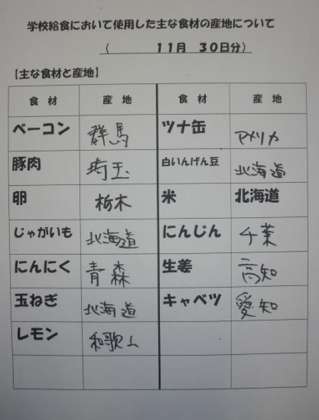 学校給食において使用した主な食材の産地について
(　　　11月　30日分)
【主な食材と産地】
食材　産地　食材　産地
ベーコン　群馬　ツナ缶　アメリカ
豚肉　埼玉　白いんげん豆　北海道
卵　栃木　米　北海道
じゃがいも　北海道　にんじん　千葉
にんにく　青森　生姜　高知
玉ねぎ　北海道　キャベツ　愛知
レモン　和歌山